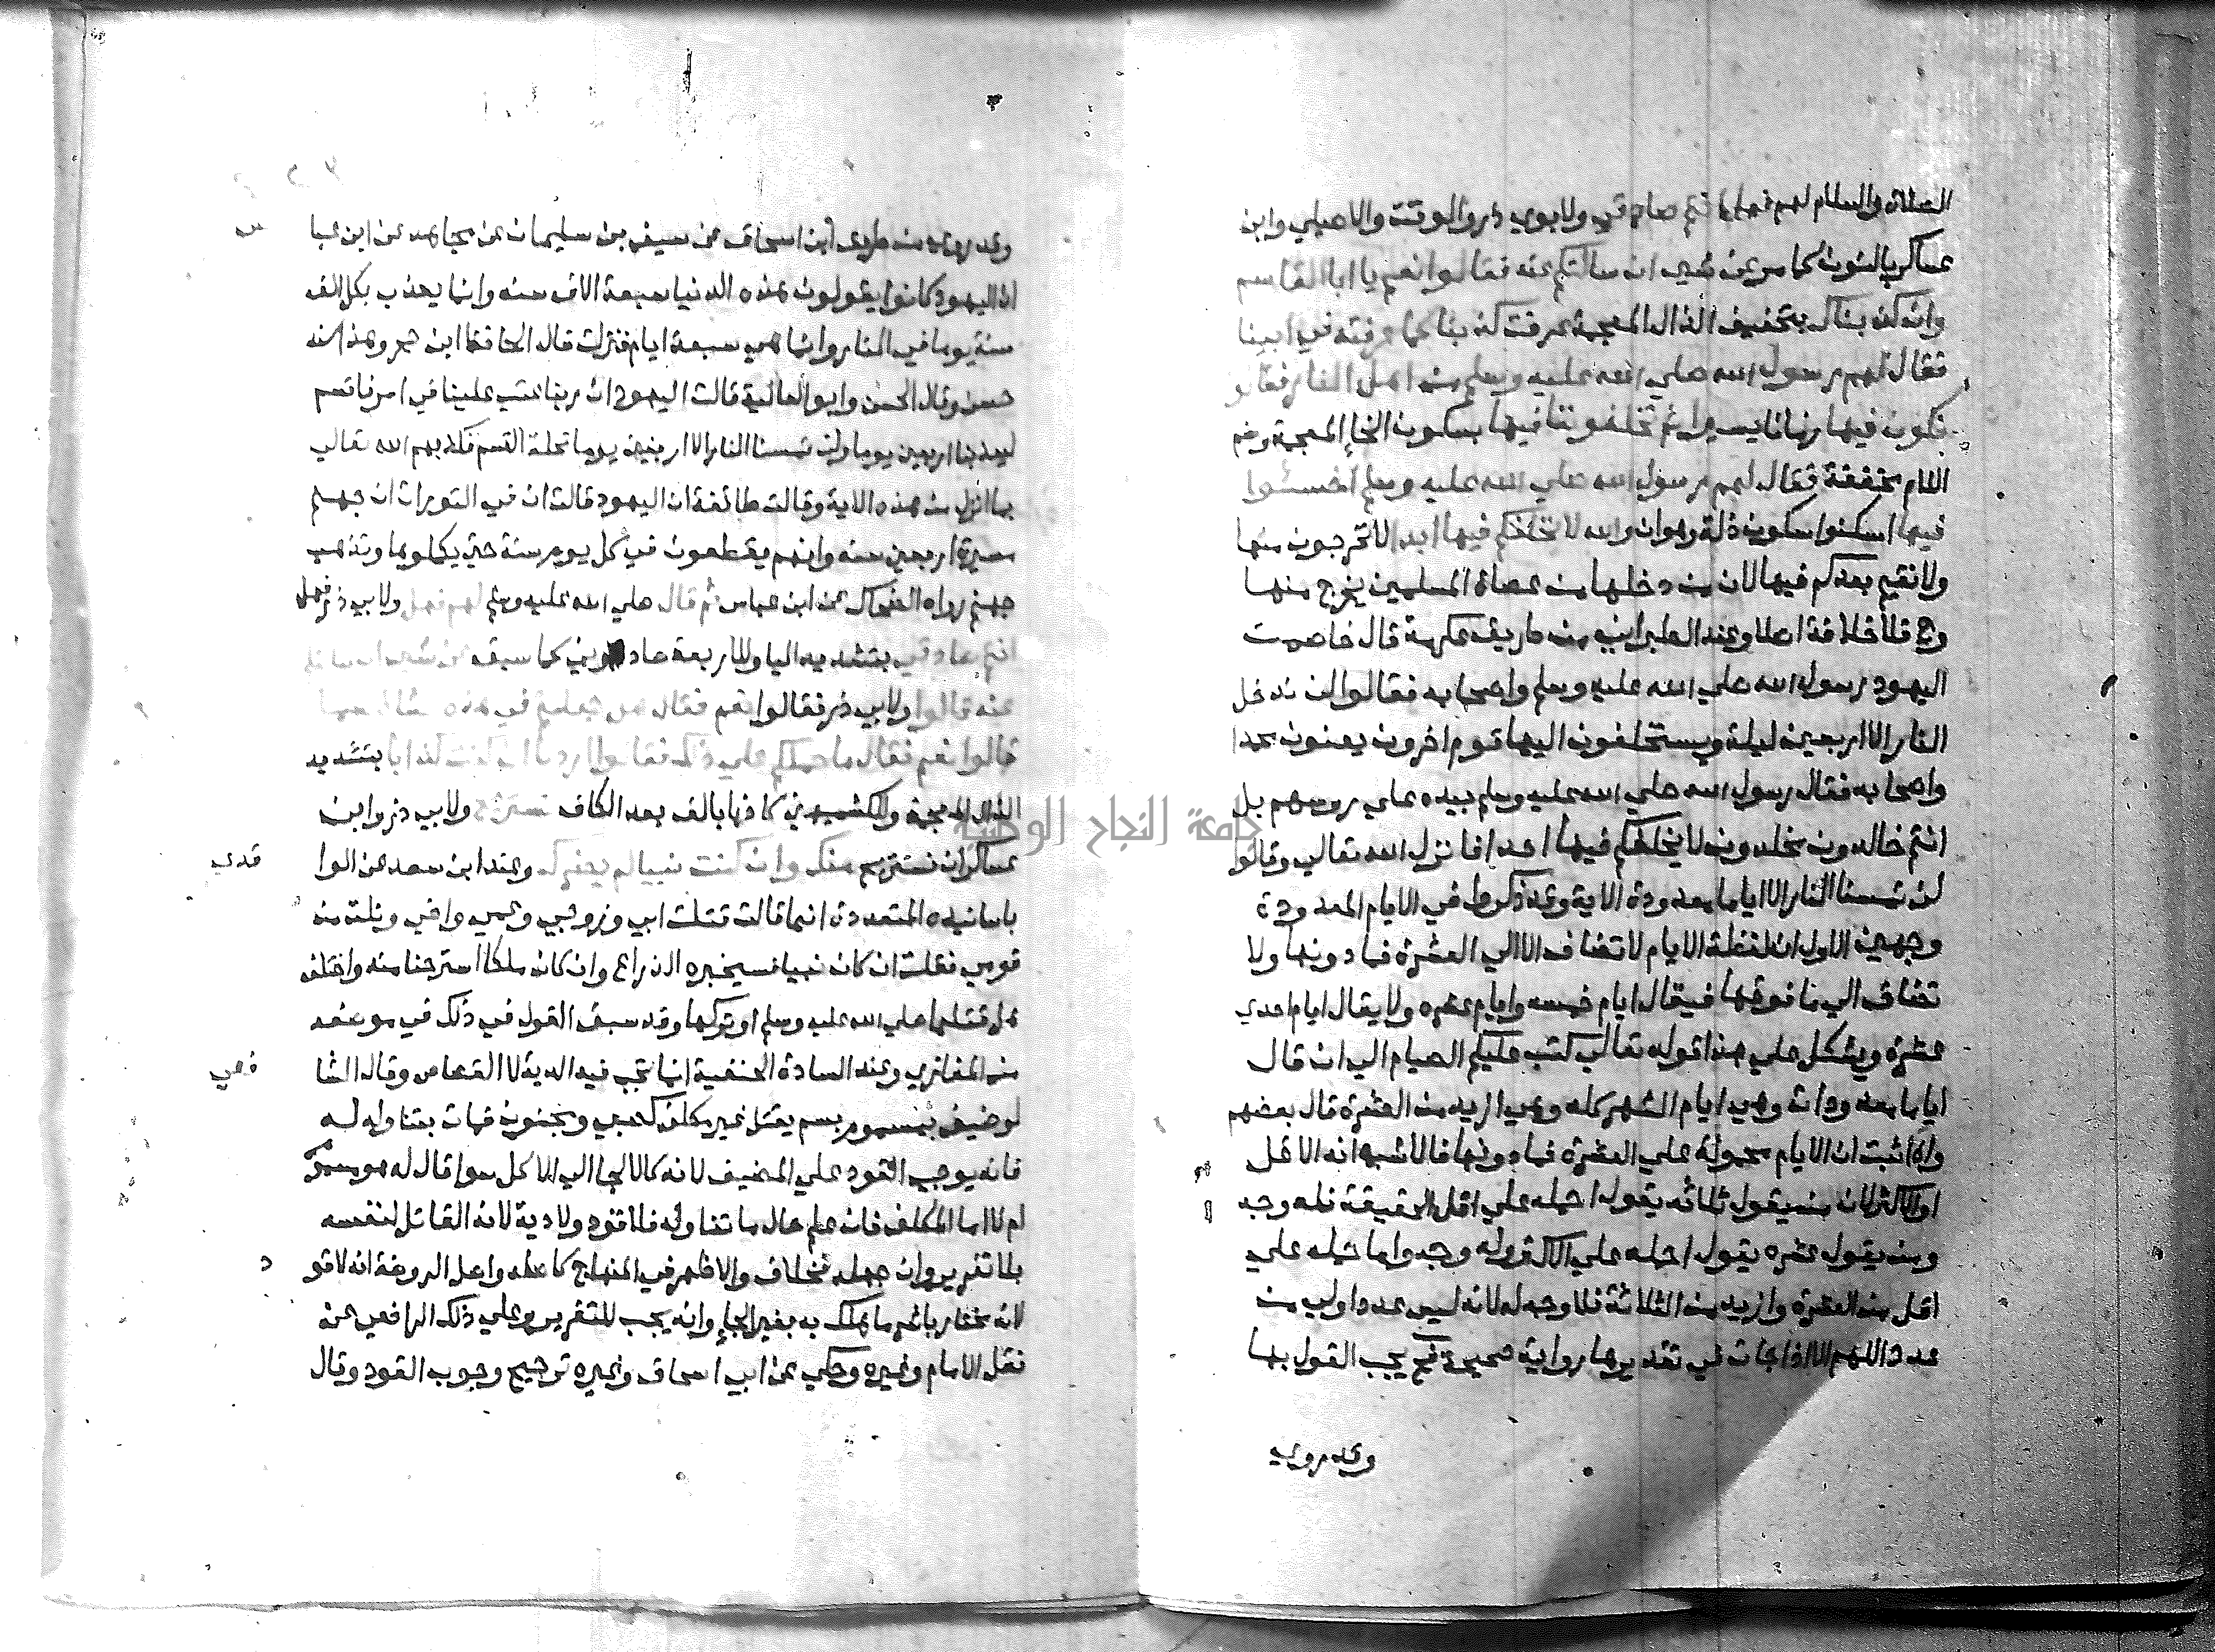 الصلاة والسلام لهم فهل انتم صادقي ولابوي ذر والوقت والاصيلي وابن
عساكر بالنون كما مر عن شيء ان سالتكم عنه فقالوا نعم يا ابا القاسم
وان كذبناك بتخفيف الذال المعجمة عرفت كذبنا كما عرفته في ابينا
فقال لهم رسول الله صلي الله عليه وسلم من اهل النار فقالوا
نكون فيها زمانا يسيرا ثم تخلفوننا فيها بسكون الخاء المعجمة وضم
اللام مخففة فقال لهم رسول الله صلي الله عليه وسلم اخسئوا
فيها اسكنوا سكون ذلة وهوان والله لا نخلفكم فيها ابدا لا تخرجون منها
ولا نقيم بعدكم فيها لان من دخلها من عصاة المسلمين يخرج منها
وح فلا خلافة اصلا وعند الطبراني من طريق عكرمة قال خاصمت
اليهود رسول الله صلي الله عليه وسلم واصحابه فقالوا لن ندخل
النار الا اربعين ليلة ويستخلفون اليها قوم اخرون يعنون محمدا
واصحابه فقال رسول الله صلي الله عليه وسلم بيده علي روسهم بل
انتم خالدون مخلدون لا يخلفكم فيها احد فانزل الله تعالي وقالوا
لن تمسنا النار الا اياما معدودة الاية وقد ذكروا في الايام المعدودة
وجهين الاول ان لفظة الايام لا تضاف الا الي العشرة فما دونها ولا
تضاف الي ما فوقها فيقال ايام خمسه وايام عشره ولا يقال ايام احدي
عشرة ويشكل علي هذا قوله تعالي كتب عليكم الصيام الي ان قال
اياما معدودات وهي ايام الشهر كله وهي ازيد من العشرة قال بعضهم
واذا ثبت ان الايام محمولة علي العشرة فما دونها فالاشبه انه الاقل
او الاكثر لان من يقول ثلاثه يقول احمله علي اقل الحقيقة فله وجه
ومن يقول عشره يقول احمله علي الاكثر وله وجه واما حمله علي
اقل من العشرة وازيد من الثلاثة فلا وجه له لانه ليس عدد اولي من
عدد اللهم الا اذا جات في تقديرها رواية صحيحة فح يجب القول بها
وقد روي
وقد روي من طريق ابن اسحاق عن سيف بن سليمان عن مجاهد عن ابن عبا
س
ان اليهود كانوا يقولون هذه الدنيا سبعة الاف سنه وانما يعذب بكل الف
سنة يوما في النار وانما هي سبعة ايام فنزلت قال الحافظ ابن حجر وهذا سند
حسن وقال الحسن وابو العالية قالت اليهود ان ربنا عتب علينا في امر فاقسم
ليعذبنا اربعين يوما ولن تمسنا النار الا اربعين يوما تحلة القسم فكذبهم الله تعالي
بما انزل من هذه الاية وقالت طائفة ان اليهود قالت ان في التوراة ان جهنم
مسيرة اربعين سنه وانهم يقطعون في كل يوم مسيرة سنة حتي يكملوها وتذهب
جهنم رواه الضحاك عن ابن عباس ثم قال صلي الله عليه وسلم لهم فهل ولابي ذر فهل
انتم صادقي بتشديد اليا وللاربعة صادقوني كما سبق عن شيء ان سالتكم
عنه قالوا ولابي ذر فقالوا نعم فقال هل جعلتم في هذه الشاة سما
قالوا نعم فقال ما حملكم علي ذلك فقالوا اردنا ان كنت كذابا بتشديد
الذال المعجمة وللكشميهني كاذبا بالف بعد الكاف نستريح ولابي ذر وابن
عساكر ان نستريح منك وان كنت نبيا لم يضرك وعند ابن سعد عن الوا
قدي
باسانيده المتعددة انها قالت قتلت ابي وزوجي وعمي واخي ونلت من
قومي فقلت ان كان نبيا فسيخبره الذراع وان كان ملكا استرحنا منه واختلف
هل قتلها صلي الله عليه وسلم او تركها وقد سبق القول في ذلك في موضعه
من المغازي وعند السادة الحنفية انما تجب فيه الدية لا القصاص وقال الشا
فعي
لو ضيف بمسموم بسم يقتل غير مكلف كصبي ومجنون فمات بتناوله له
فانه يوجب القود علي المضيف لانه كالالجا الي الاكل سوا قال له هو مسموم
ام لا اما المكلف فان علم حال ما تناوله فلا قود ولا دية لانه القاتل لنفسه
بلا تغرير وان جهله فخلاف والاظهر في المنهاج كاصله واصل الروضة انه لا قو
د
لانه مختار باشر ما هلك به بغير الجاء وانه يجب للتغرير وعلي ذلك الرافعي عن
نقل الامام وغيره وحكي عن ابي اسحاق وغيره ترجيح وجوب القود وقال
جامعة النجاح الوطنية